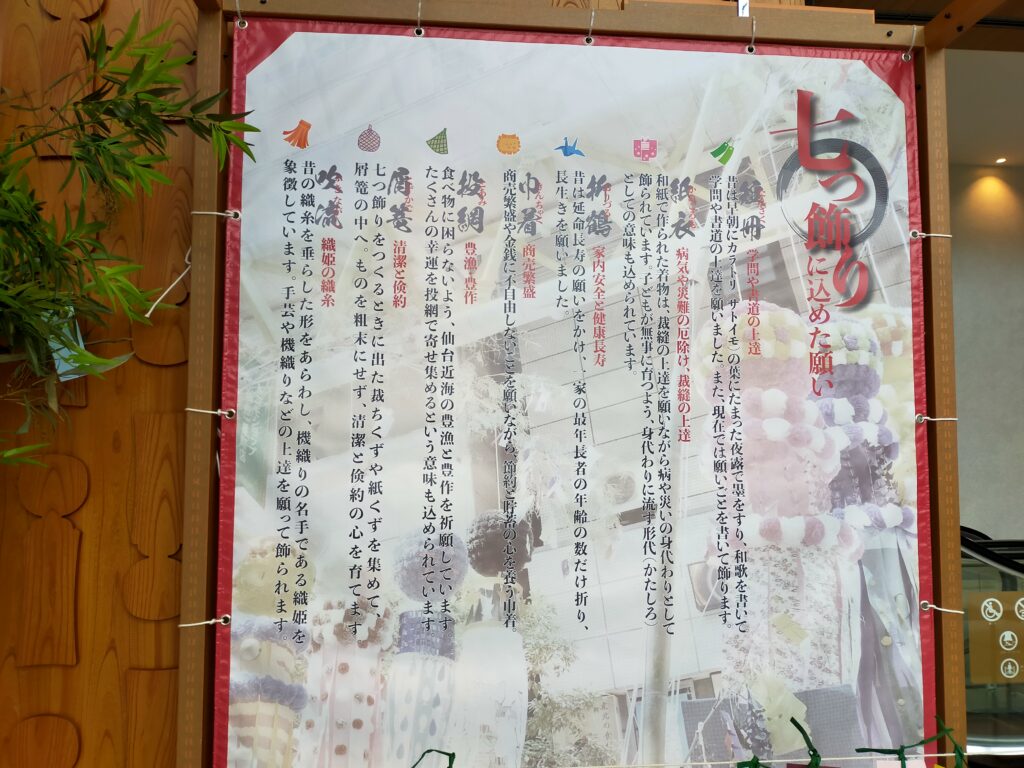 七つ飾りに込めた願い
短冊 学問や書道の上達
昔は早朝にカラトリ(サトイモ)の葉にたまった夜露で墨をすり、和歌を書いて
学問や書道の上達を願いました。また、現在では願いごとを書いて飾ります。
紙衣 病気や災難の厄除け、裁縫の上達
和紙で作られた着物は、裁縫の上達を願いながら病や災いの身代わりとして
飾られています。子どもが無事に育つよう、身代わりに流す形代(かたしろ)
としての意味も込められています。
折鶴 家内安全と健康長寿
昔は延命長寿の願いをかけ、一家の最年長者の年齢の数だけ折り、
長生きを願いました。
巾着 商売繁盛
商売繁盛や金銭に不自由しないことを願いながら、節約と貯蓄の心を養う巾着。
投網 豊漁・豊作
食べ物に困らないよう、仙台近海の豊漁と豊作を祈願しています
たくさんの幸運を投網で寄せ集めるという意味も込められています
屑篭 清潔と倹約
七つ飾りをつくるときに出た裁ちくずや紙くずを集めて、
屑篭の中へ。ものを粗末にせず、清潔と倹約の心を育てます。
吹流し 織姫の織糸
昔の織糸を垂らした形をあらわし、機織りの名手である織姫を
象徴しています。手芸や機織りなどの上達を願って飾られます。